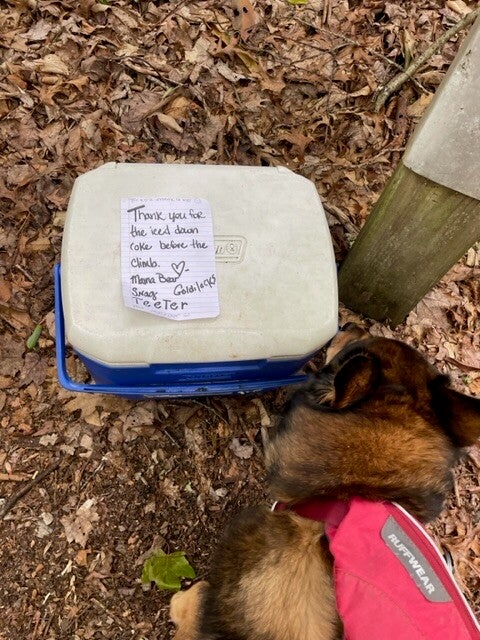 Thank you for
the iced down
coke before the
climb.
Mama Bear
Snag Goldilocks
TeeTer
RUFFWEAR